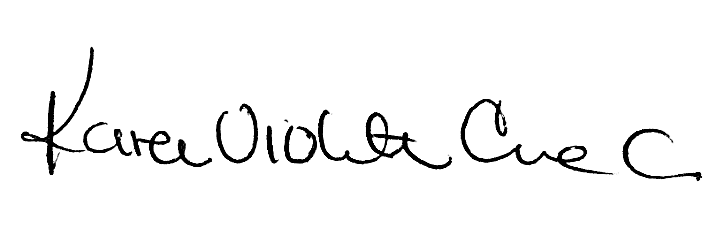 Karen Violeta Cue C